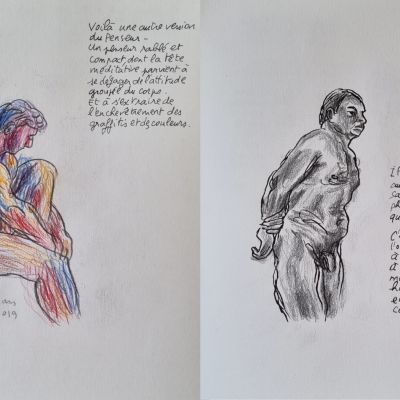 Voilà une autre version
du Penseur -
Un penseur rablé et
compact dont la tête
méditative parvient à
se dégager de l'attitude
groupée du corps.
Et à s'extraire de
l'enchevêtrement des
graffitis et de couleurs.
2019
au
sa
ph
qu
C'
l'o
à
à